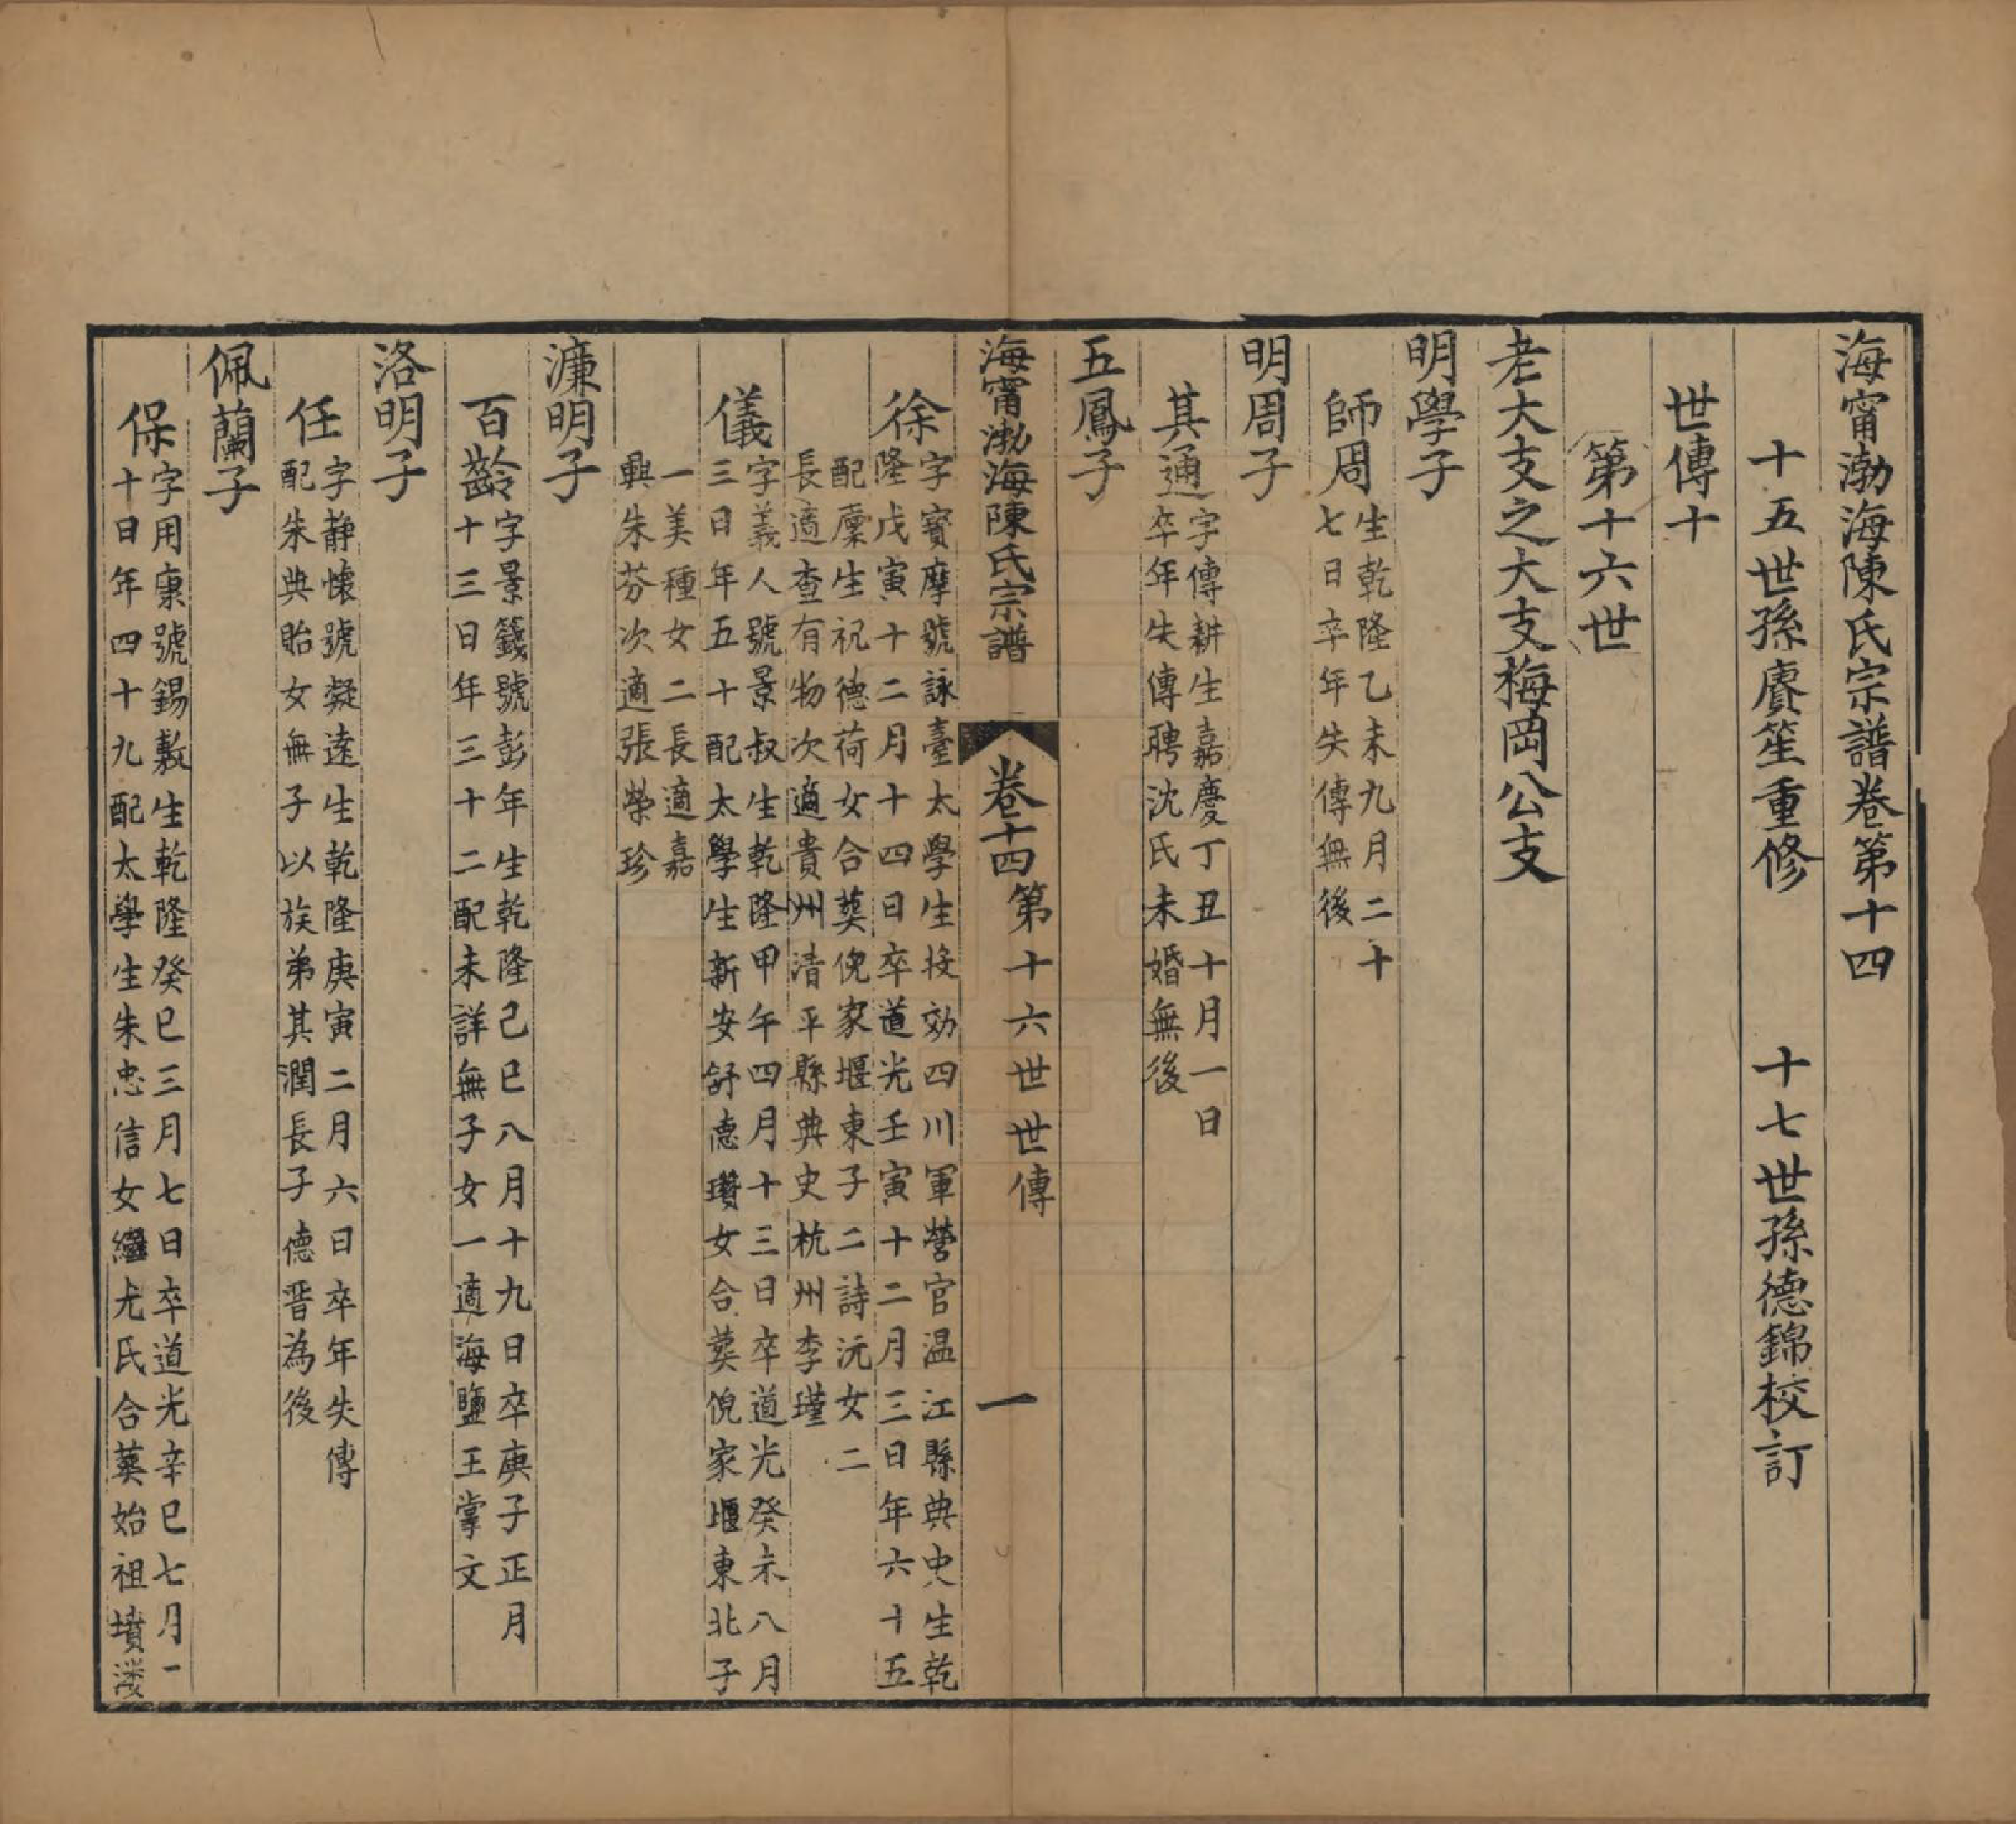 海甯渤海陳氏宗譜卷第十四
十五世孫賡笙重修　十七世孫德錦校訂
世傳十
第十六世
老大支之大支梅岡公支
明學子
師周
生乾隆乙未九月二十
七日卒年失傳無後
明周子
其通
字傳耕生嘉慶丁丑十月一日
卒年失傳聘沈氏未婚無後
五鳳子
海甯渤海陳氏宗譜
卷十四
第十六世世傳
一
徐
字寶摩號詠臺太學生投効四川軍營官温江縣典史生乾
隆戊寅十二月十四日卒道光壬寅十二月三日年六十五
配廩生祝德荷女合葬倪家堰東子二詩沅女二
長適查有物次適貴州清平縣典史杭州李瑾
儀
字義人號景叔生乾隆甲午四月十三日卒道光癸未八月
三日年五十配太學生新安舒德瓚女合葬倪家堰東北子
一美種女二長適嘉
興朱芬次適張榮珍
濂明子
百齡
字景籛號彭年生乾隆己巳八月十九日卒庚子正月
十三日年三十二配未詳無子女一適海鹽王掌文
洛明子
任
字静懷號凝遠生乾隆庚寅二月六日卒年失傳
配朱典貽女無子以族弟其潤長子德晋為後
佩蘭子
保
字用康號錫敷生乾隆癸巳三月七日卒道光辛巳七月一
十日年四十九配太學生朱忠信女繼尤氏合葬始祖墳漊